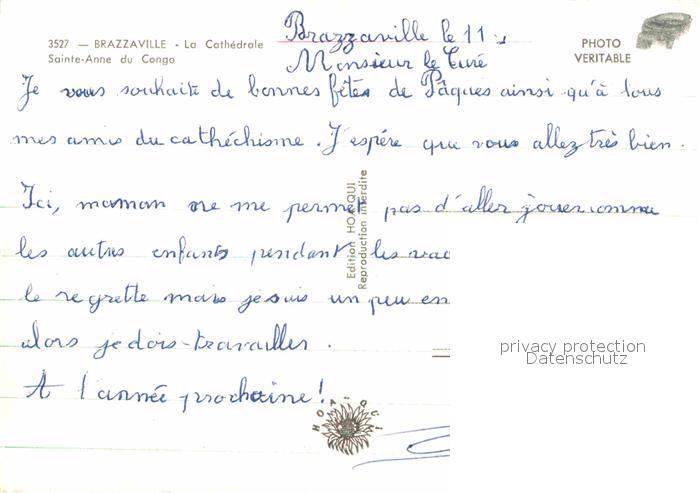 Brazzaville le 11
3527 — BRAZZAVILLE - La Cathédrale
Sainte-Anne du Congo
PHOTO
VERITABLE
Monsieur le Curé
Je vous souhaite de bonnes fêtes de Pâques ainsi qu'à tous
mes amis du cathéchisme. J'espére que vous allez très bien.
Ici, maman ne me permet pas d'aller jouer comme
les autres enfants pendant les vac
le regrette mais je suis un peu en
alors je dois-travailler.
A l'année prochaine!
Edition HOA-QUI
Reproduction interdite
HOA-QUI
privacy protection
Datenschutz